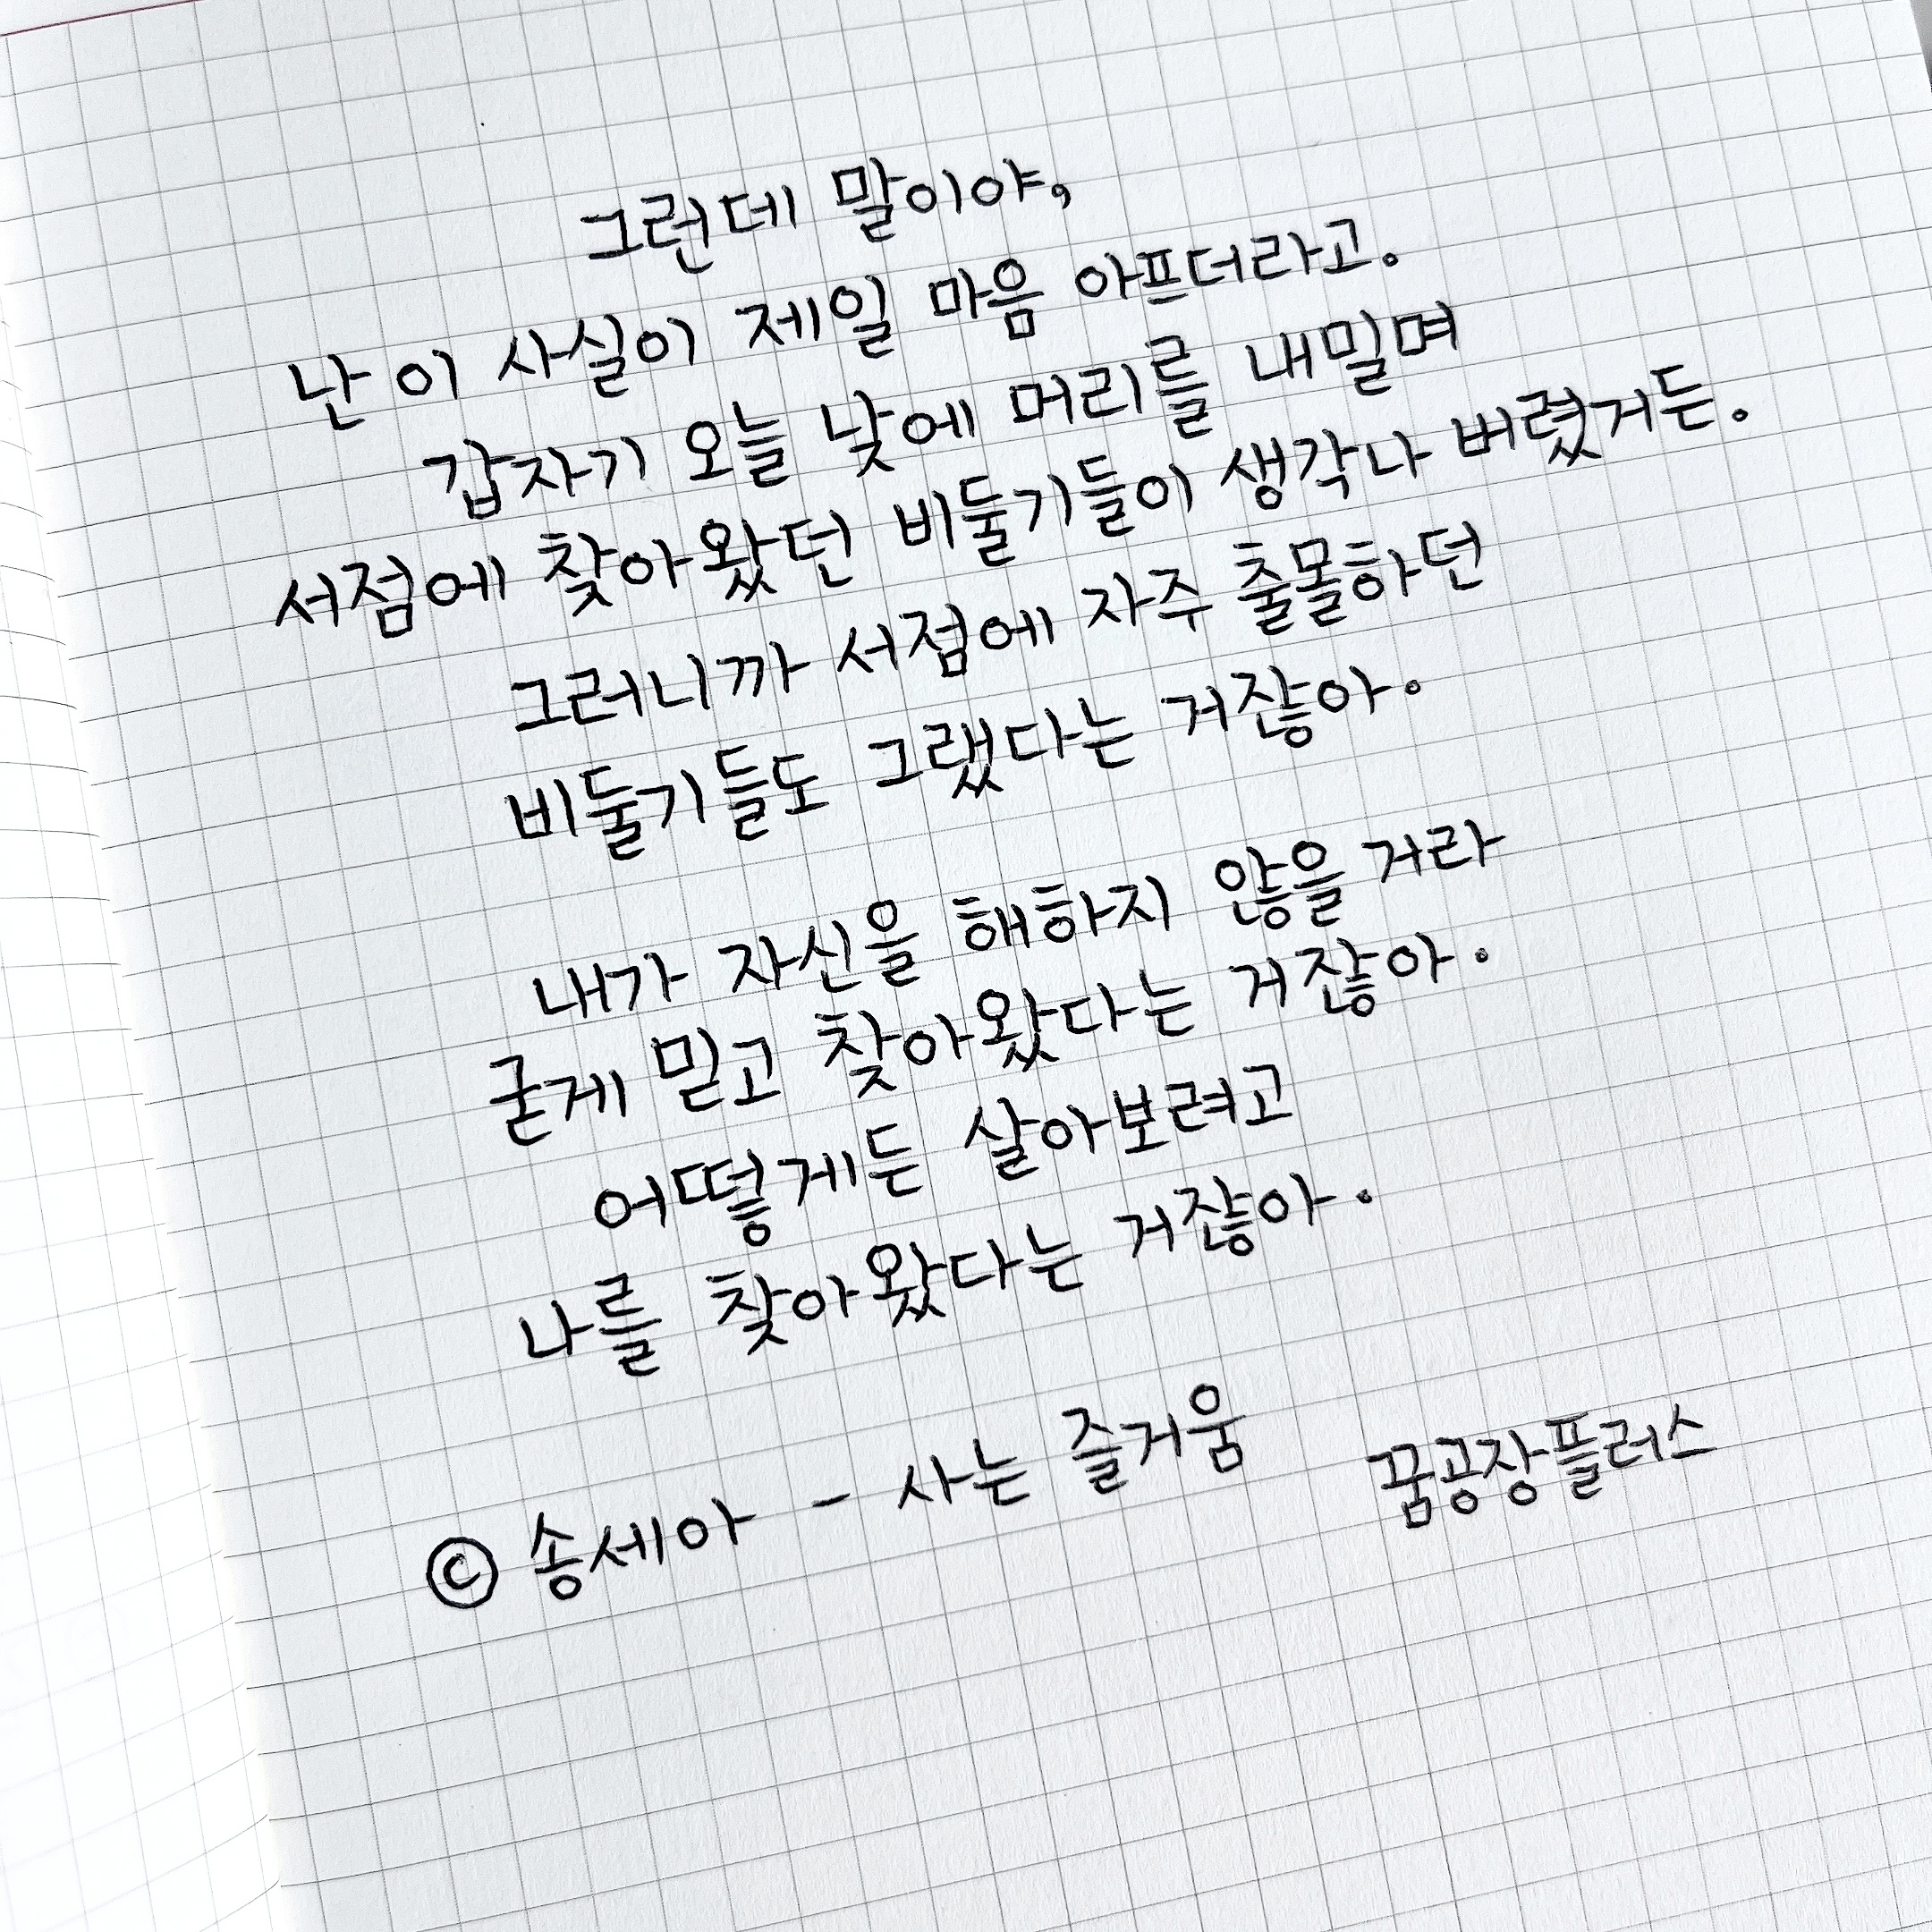 그런데 말이야,
난 이 사실이 제일 마음 아프더라고.
갑자기 오늘 낮에 머리를 내밀며
서점에 찾아왔던 비둘기들이 생각나 버렸거든.
그러니까 서점에 자주 출몰하던
비둘기들도 그랬다는 거잖아.
내가 자신을 해하지 않을 거라
굳게 믿고 찾아왔다는 거잖아.
어떻게든 살아보려고
나를 찾아왔다는 거잖아.
© 송세아 - 사는 즐거움 꿈공장플러스